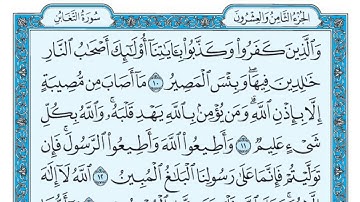 سُورَةُ التَّغَابُنِ
الجُزْءُ الثَّامِنُ وَالعِشْرُونَ
وَالَّذِينَ كَفَرُوا۟ وَكَذَّبُوا۟ بِـَٔايَـٰتِنَآ أُو۟لَـٰٓئِكَ أَصْحَـٰبُ النَّارِ
خَـٰلِدِينَ فِيهَا ۖ وَبِئْسَ الْمَصِيرُ ١٠ مَآ أَصَابَ مِن مُّصِيبَةٍ
إِلَّا بِإِذْنِ اللَّهِ ۗ وَمَن يُؤْمِنۢ بِاللَّهِ يَهْدِ قَلْبَهُۥ ۚ وَاللَّهُ بِكُلِّ
شَىْءٍ عَلِيمٌ ١١ وَأَطِيعُوا۟ اللَّهَ وَأَطِيعُوا۟ الرَّسُولَ ۚ فَإِن
تَوَلَّيْتُمْ فَإِنَّمَا عَلَىٰ رَسُولِنَا الْبَلَـٰغُ الْمُبِينُ ١٢ اللَّهُ لَآ إِلَـٰهَ